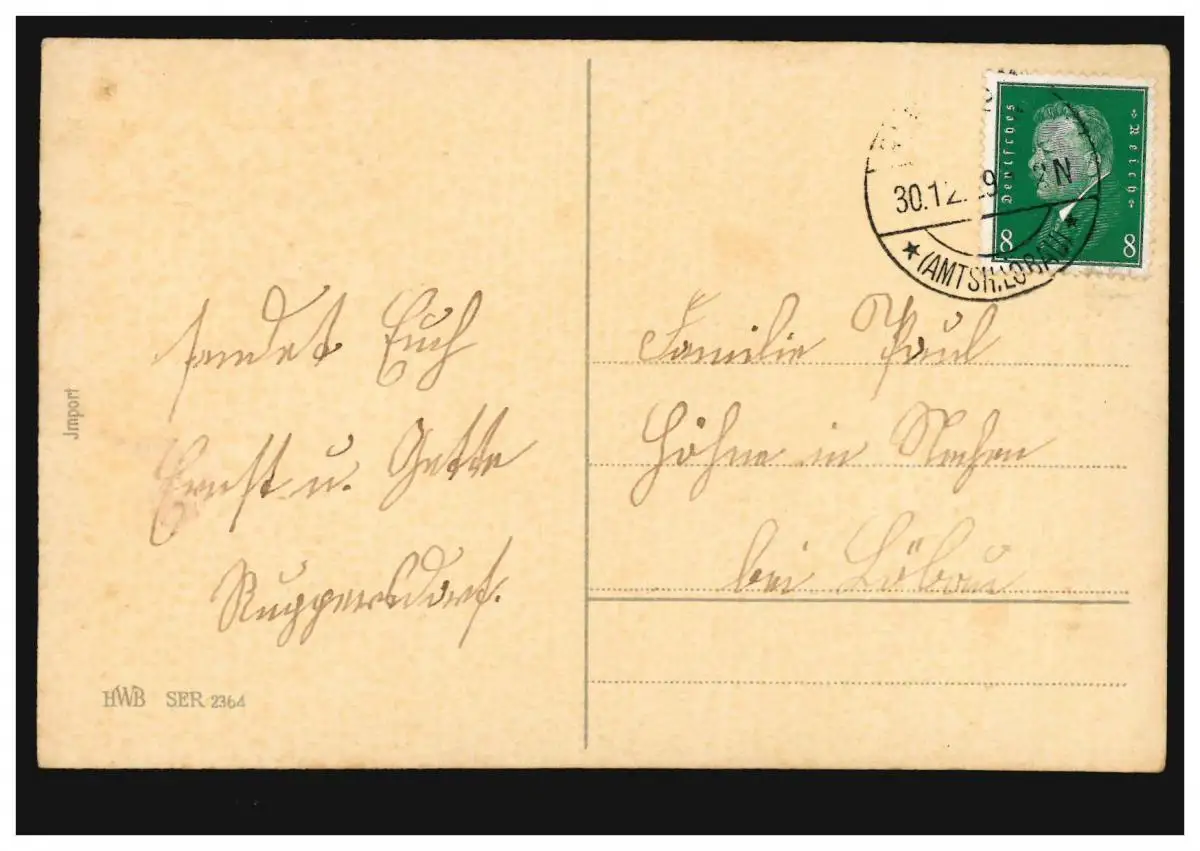 sendet Euch
Ernst u.
Ruppersdorf.
Jmport
HWB SER 2364
Deutsches Reich
8 8
30.12. 9 N
(AMTSH.LÖBAU)
Familie Paul
Höhne in Nechen
bei Löbau